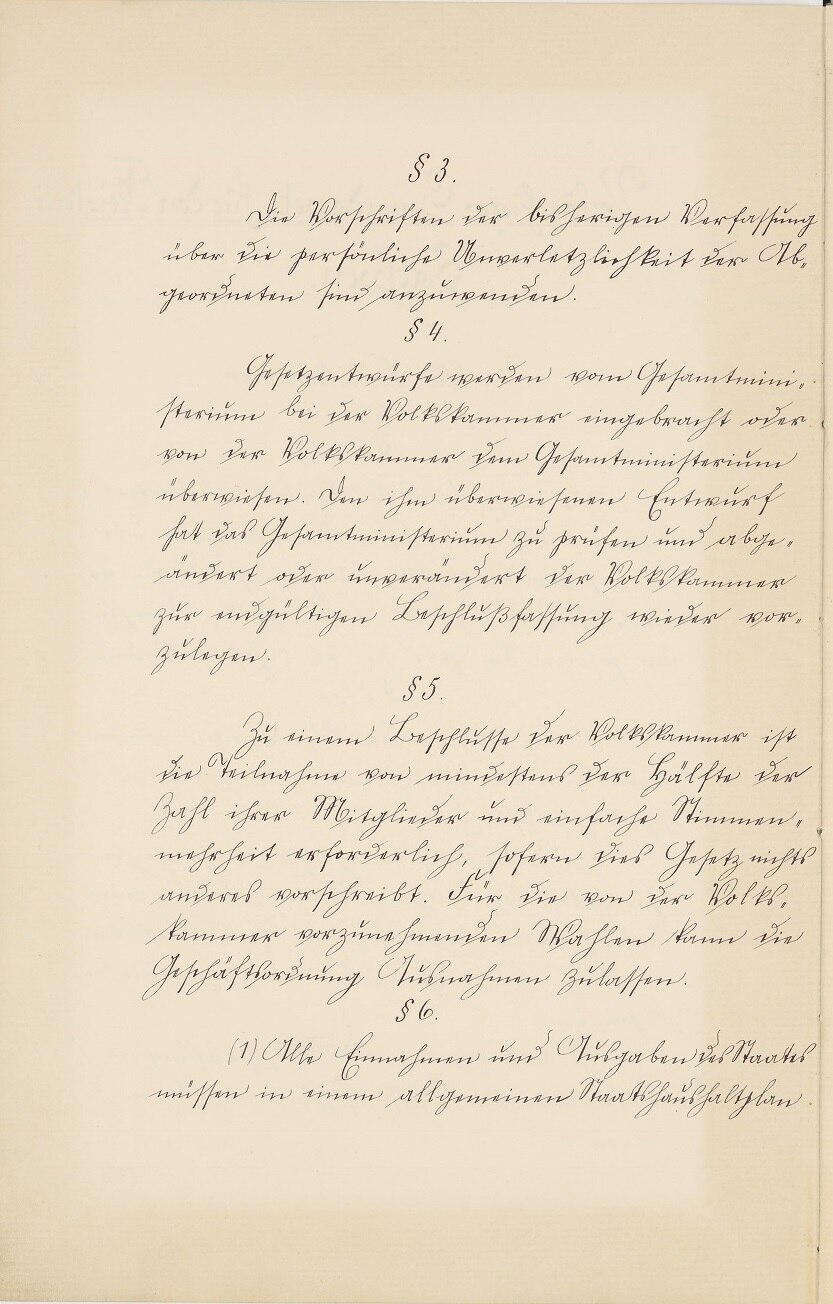 § 3.
Die Vorschriften der bisherigen Verfassung
über die persönliche Unverletzlichkeit der Ab-
geordneten sind anzuwenden.
§ 4.
Gesetzentwürfe werden vom Gesamtmini-
sterium bei der Volkskammer eingebracht oder
von der Volkskammer dem Gesamtministerium
überwiesen. Den ihm überwiesenen Entwurf
hat das Gesamtministerium zu prüfen und abge-
ändert oder unverändert der Volkskammer
zur endgültigen Beschlußfassung wieder vor-
zulegen.
§ 5.
Zu einem Beschlusse der Volkskammer ist
die Teilnahme von mindestens der Hälfte der
Zahl ihrer Mitglieder und einfache Stimmen-
mehrheit erforderlich, sofern dies Gesetz nichts
anderes vorschreibt. Für die von der Volks-
kammer vorzunehmenden Wahlen kann die
Geschäftsordnung Ausnahmen zulassen.
§ 6.
(1) Alle Einnahmen und Ausgaben des Staates
müssen in einem allgemeinen Staatshaushaltplan